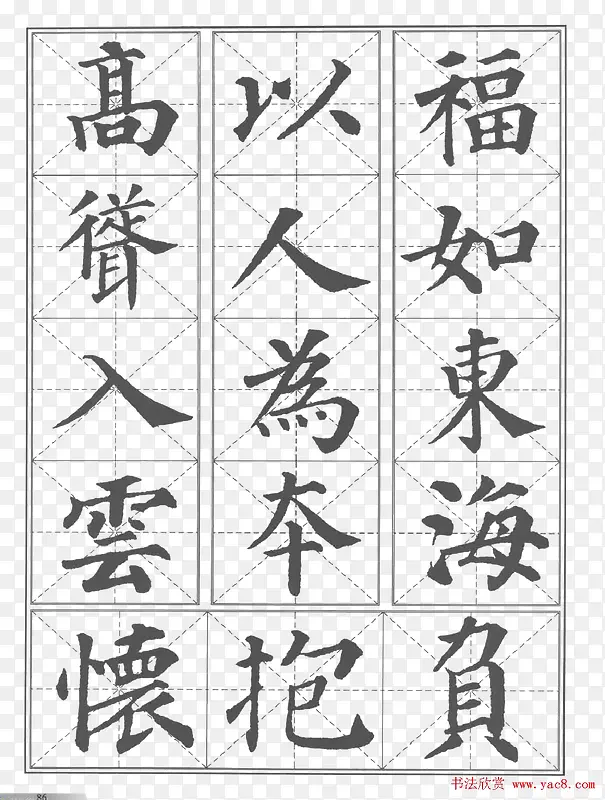 福如東海
以人為夲
髙聳入雲
懷抱負
86
书法欣赏 www.yac8.com